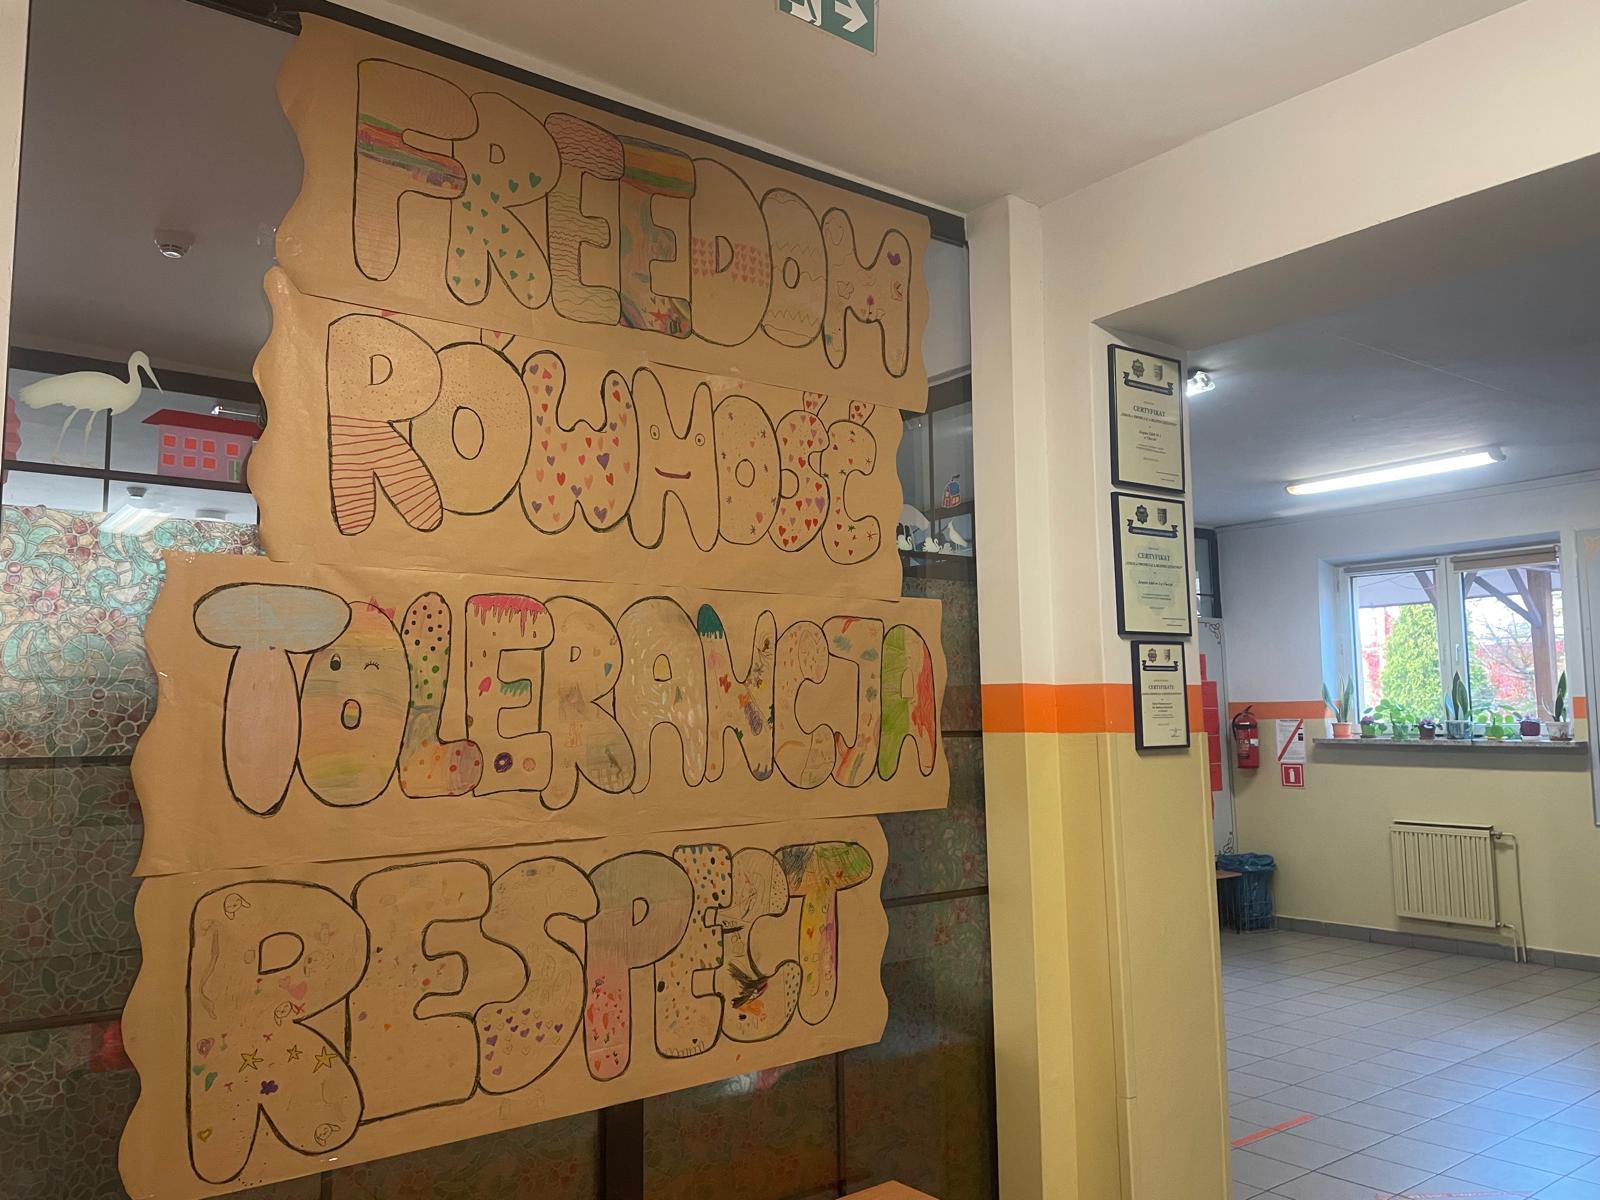 FREEDOM
RÓWNOŚĆ
TOLERANCJA
RESPECT
CERTYFIKAT
CERTYFIKAT
CERTYFIKAT